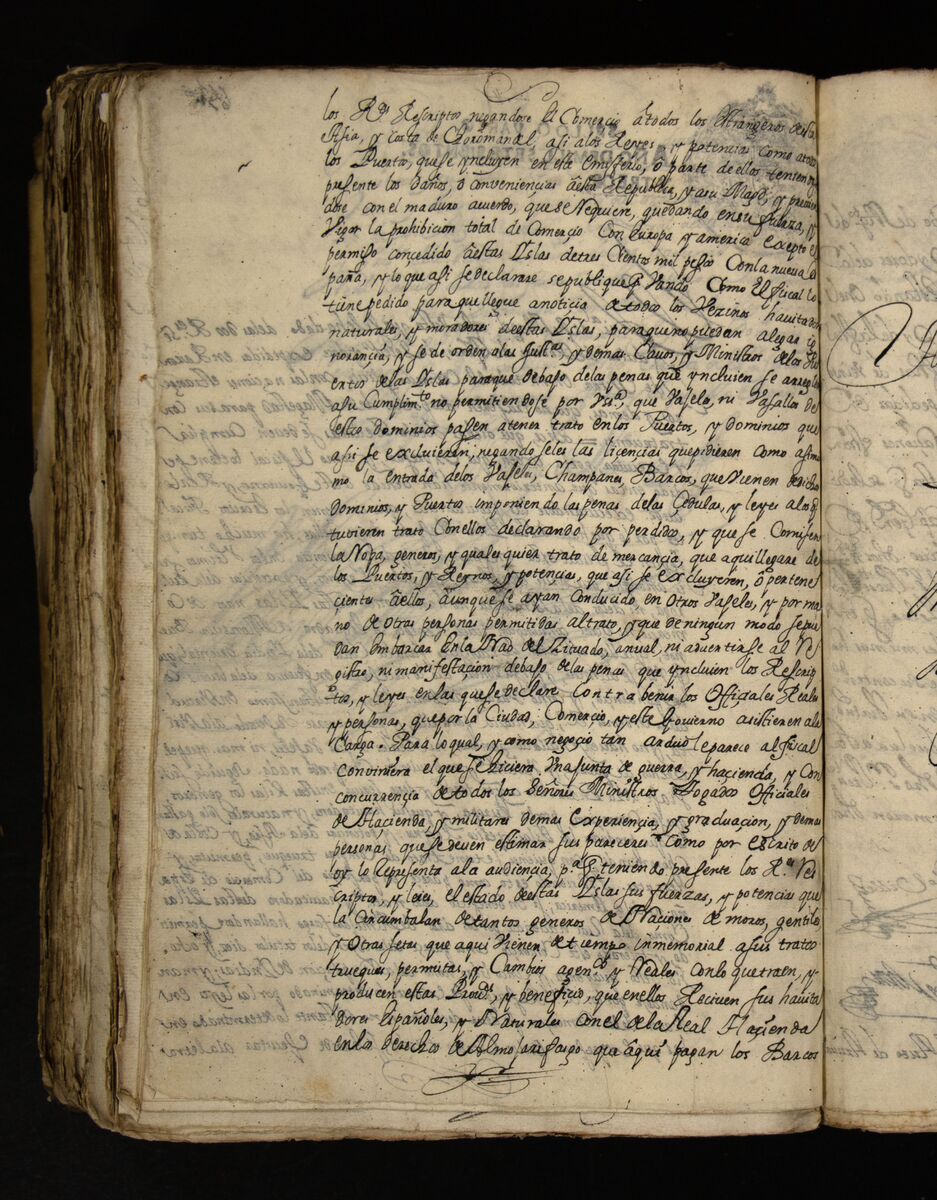 los R.s Rescriptos negandose El Comercio atodos los Strangeros dela
Asia, y costa de Coromandel, asi alos Reyes, y potencias como atodos
los Puertos, que se yncluyen en este emisferio, ô parte de ellos teniendo
presente los daños, ô conveniencias desta Republica, y asu Magd. y
dose con el maduro acuerdo, que se Requiere, quedando en su fuerza, y
Vigor la prohibicion total de Comercio Con europa y america exepto el
permiso concedido âestas Yslas detres Cientos mil pesos Conla nueva es
paña, y lo que asi se declarare se publique P. Vando Como El fiscal lo
tiene pedido para que llegue anoticia de todos los Vezinos havitadores
naturales, y moradores deestas Yslas, para que no puedan alegar ig
norancia, y se de orden alas Just.as y demas Cavos, y Ministros delos Pu
ertos de las Yslas para que debaxo delas penas que yncluien se arreglen
asu Cumplim.to no permitiendose por que Vaseles, ni Vasallos de
estos dominios pasen atener trato en los Puertos, y dominios que
assi se excluieren, negandoseles las licencias que pidieren como asimis
mo la entrada delos Vaseles, Champanes, Barcos, que Vienen de dichos
Dominios, y Puertos imponiendo las penas delas Cedulas, y leyes alos q.
tuvieren trato Con ellos declarando por perdidos, y que se Comisen
la Ropa, generos, y quales quier trato de mercancia, que aqui llegare de
los Puertos, y Reynos, y potencias, que asi se excluyeren, ô pertene
ciente âellos, âunque se ayan Conducido en otros Vaseles, y por ma
no de otras personas permitidas al trato, y que de ningun modo se pue
dan embarcar en la Nao del Zituado, anual, ni advertirse al Re
gistro, ni manifestacion debaxo de las penas que yncluien los Rescrip
tos, y leyes en las que se declare Contra benir los Officiales Reales
y personas, que por la Ciudad, Comercio, y este Govierno asistieren ala
Carga. Para lo qual, y como negocio tan arduo le parece al fiscal
Conviniera el que se hiciera Una Junta de guerra, y hacienda, y Con
concurrencia de todos los Señores Ministros Togados Officiales
de Hacienda, y militares demas Experiencia, y graduacion, y demas
personas que se deven estimar sus pareceres Como por escrito de
oy lo Representa ala audiencia, p.a q. teniendo presente los R.s Res
criptos, y leies, el estado de estas Yslas sus fuerzas, y potencias que
la Circumbalan de tantos generos de Naciones de moros, gentiles
y otras setas que aqui Vienen de tiempo inmemorial asus tratos
trueques, permutas, y Cambios a y Reales con lo que traen, y
producen estas Prov.s, y beneficio, que enellos Reciven sus havita
dores españoles, y Naturales con el de la Real Hacienda
en los derechos de Almojarifasgo que âqui pagan los Barcos